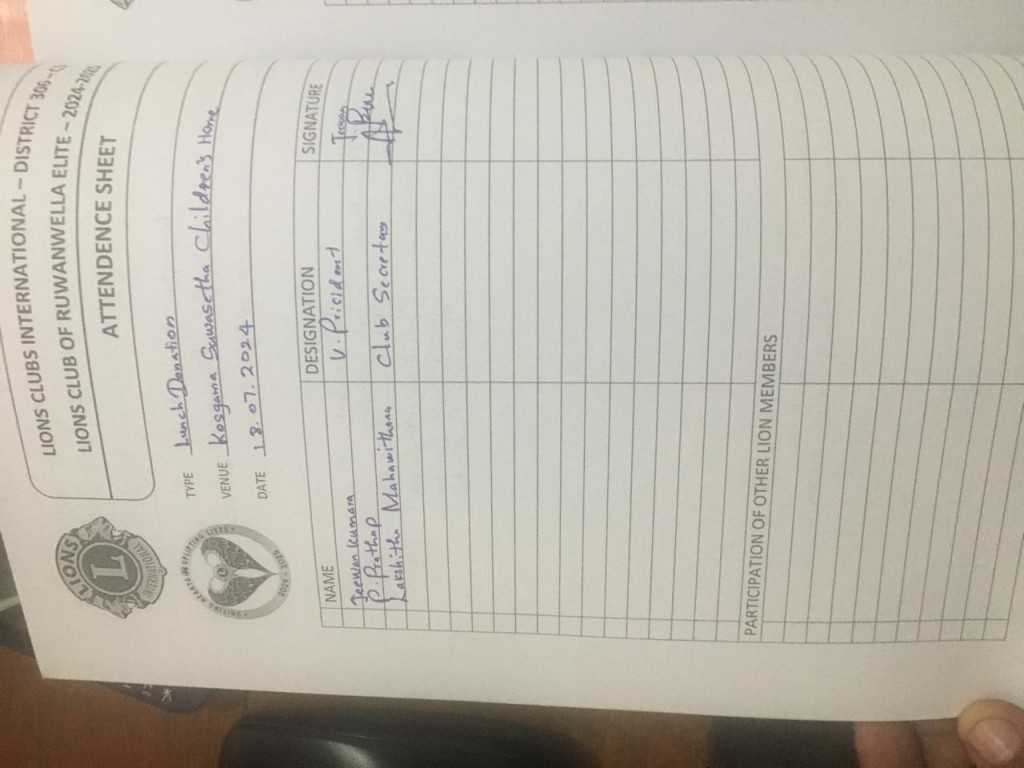 LIONS CLUBS INTERNATIONAL – DISTRICT 306 –
LIONS CLUB OF RUWANWELLA ELITE – 2024-2025
ATTENDENCE SHEET
LIONS
L
INTERNATIONAL
UNITING HEARTS UPLIFTING LIVES
2024 - 2025
TYPE Lunch Donation
VENUE Kosgama Suwasetha Children's Home
DATE 18.07.2024
NAME DESIGNATION SIGNATURE
Jeewan Kumara V. Pricident Jeewan
P. Prathap
Lakshitha Mahawithana Club Secretary
PARTICIPATION OF OTHER LION MEMBERS